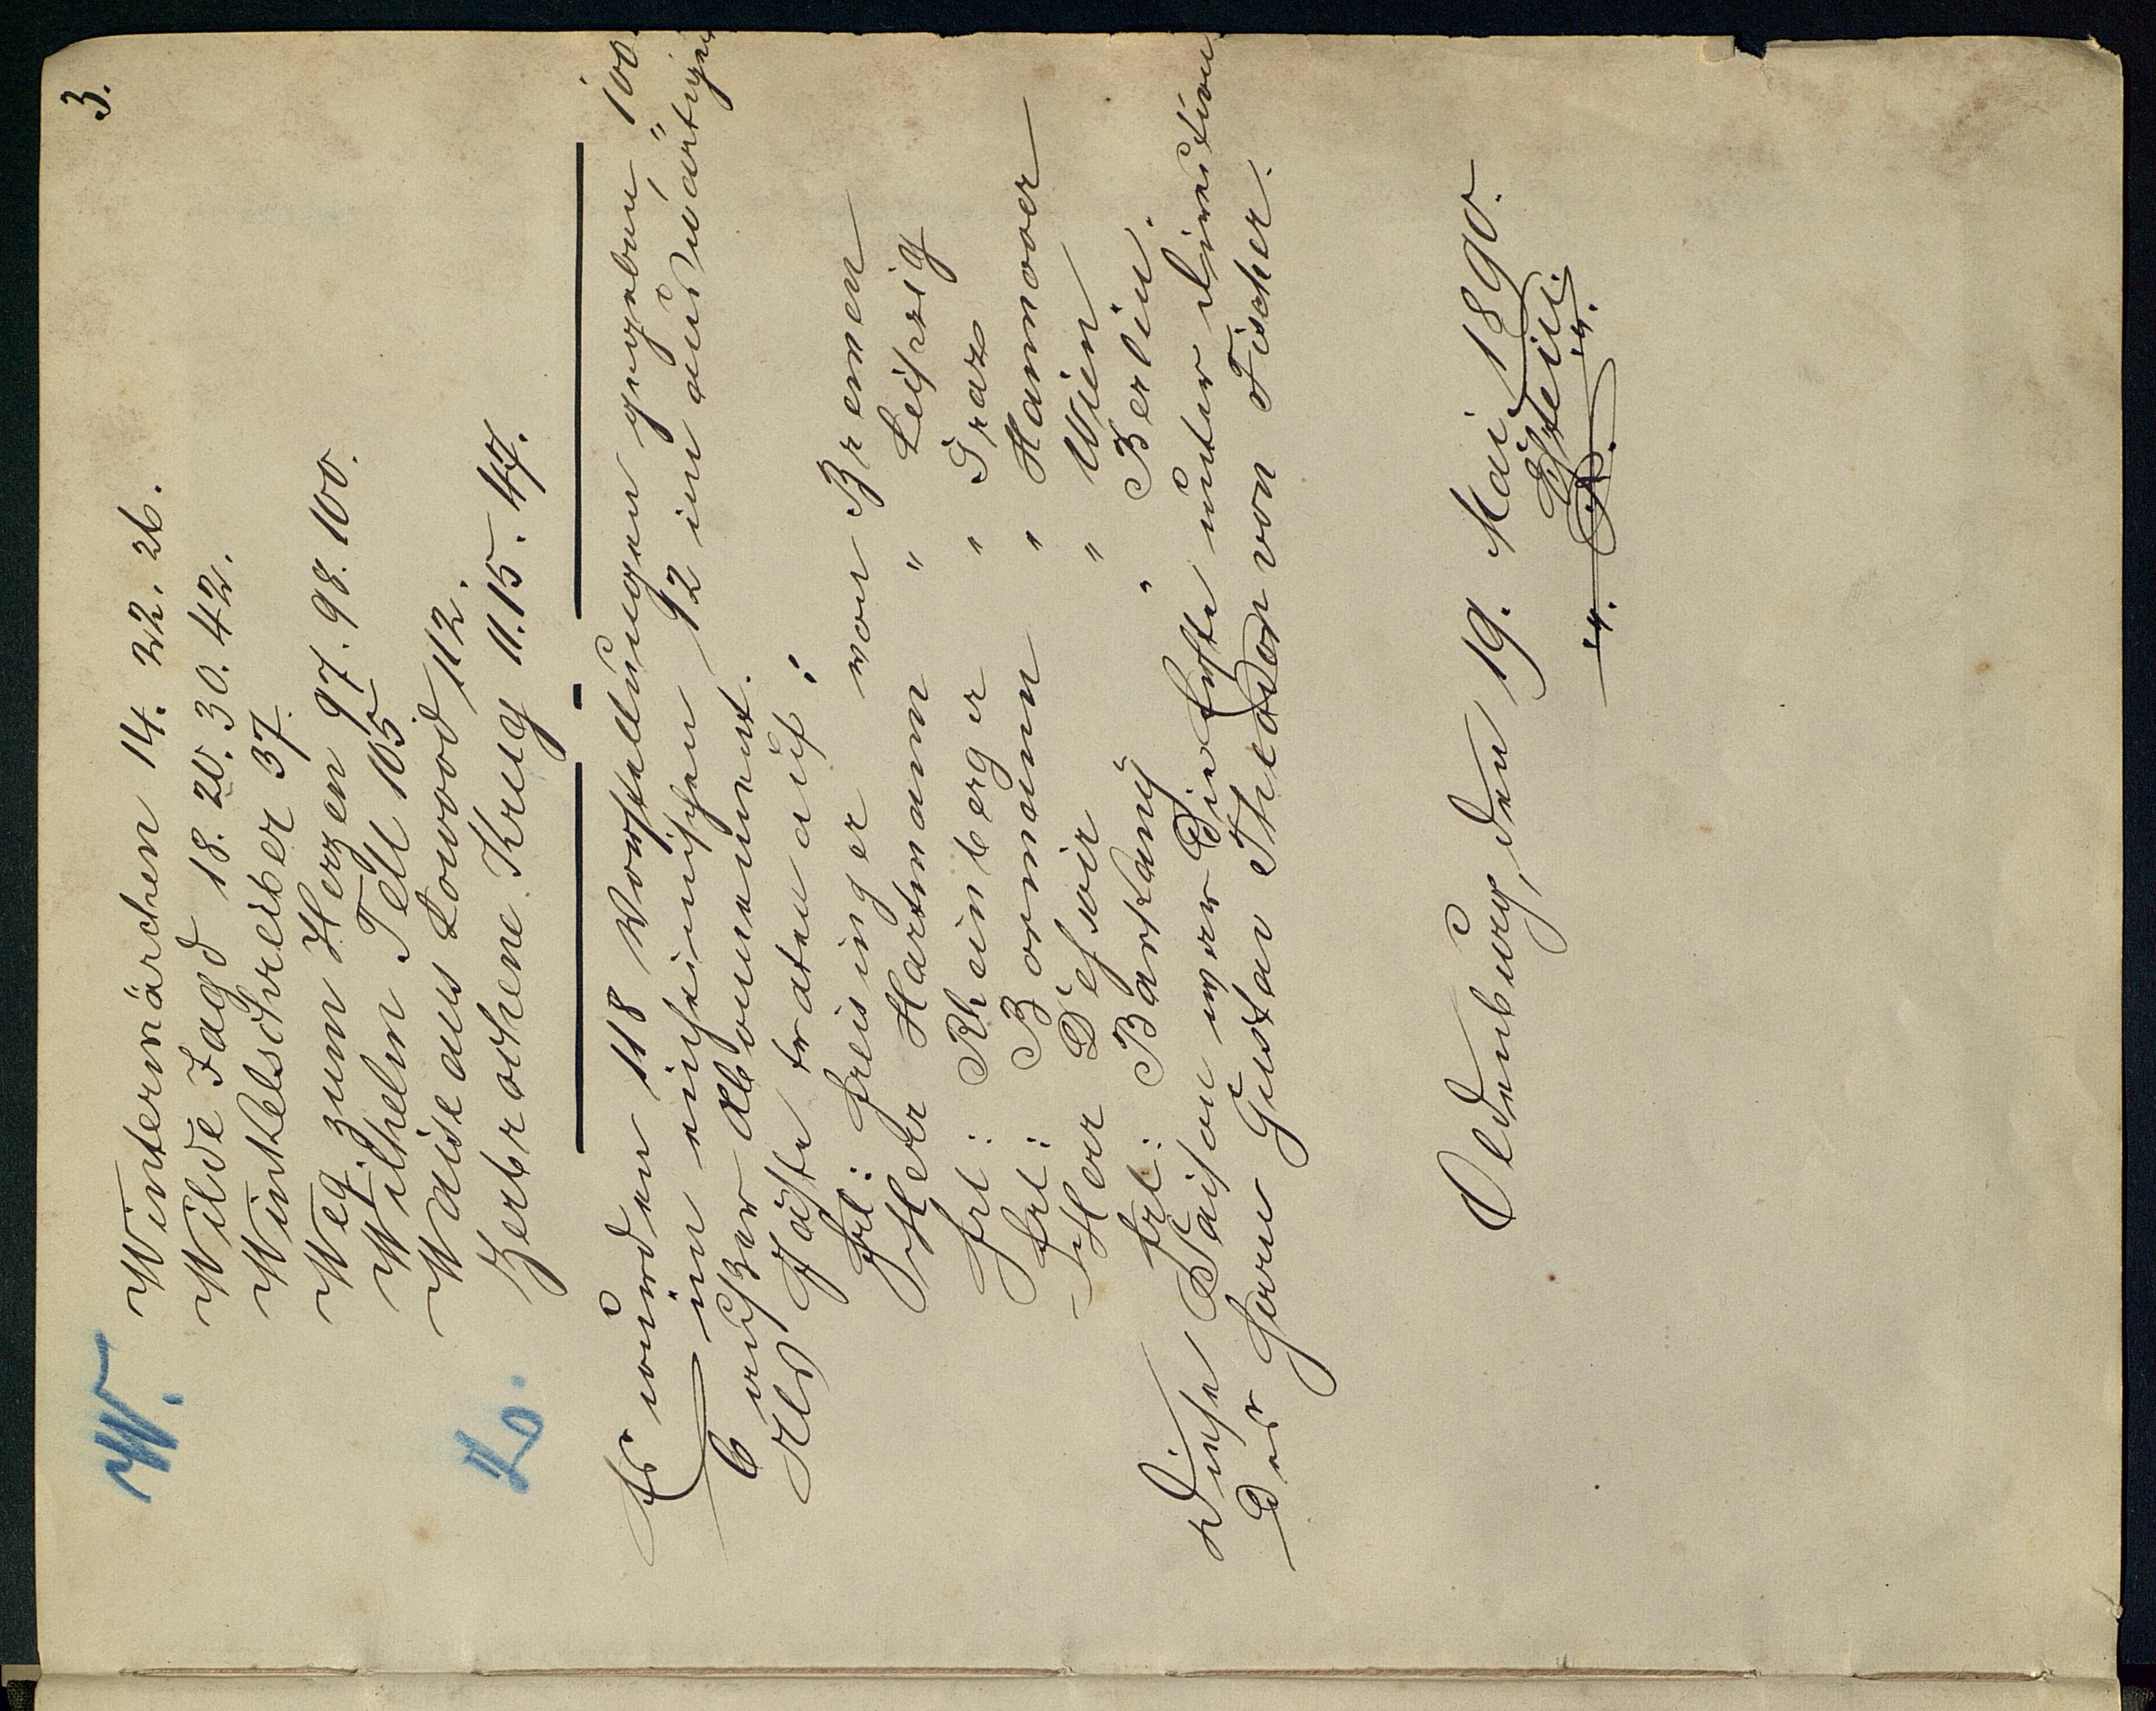 3.
W.
Wintermärchen 14. 22. 26.
Wilde Jagd 18. 20. 30. 42.
Winkelschreiber 37.
Weg zum Herzen 97. 98. 100.
Wilhelm Tell 105.
Waise aus Lowood 112.
Z.
Zerbrochene Krug 11. 15. 47.
Es wurden 118 Vorstellungen gegeben, 100
im einheimischen 12 im auswärtigen
6 ausser Abonnement.
Als Gäste traten auf:
Frl: Freisinger von Bremen
Herr Hartmann " Leipzig
Frl: Rheinberger " Graz
Frl: Bormann " Hannover
Herr Dessoir " Wien
Frl: Barkany " Berlin.
Diese Saison war die erste unter direction
des Herrn Gustav Theodor von Fischer.
Oldenburg, den 19. Mai 1890.